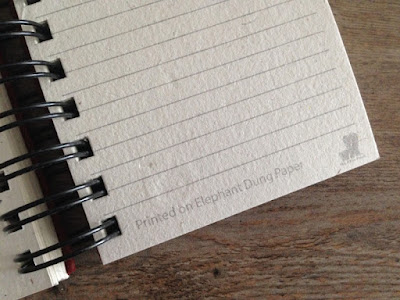 Printed on Elephant Dung Paper